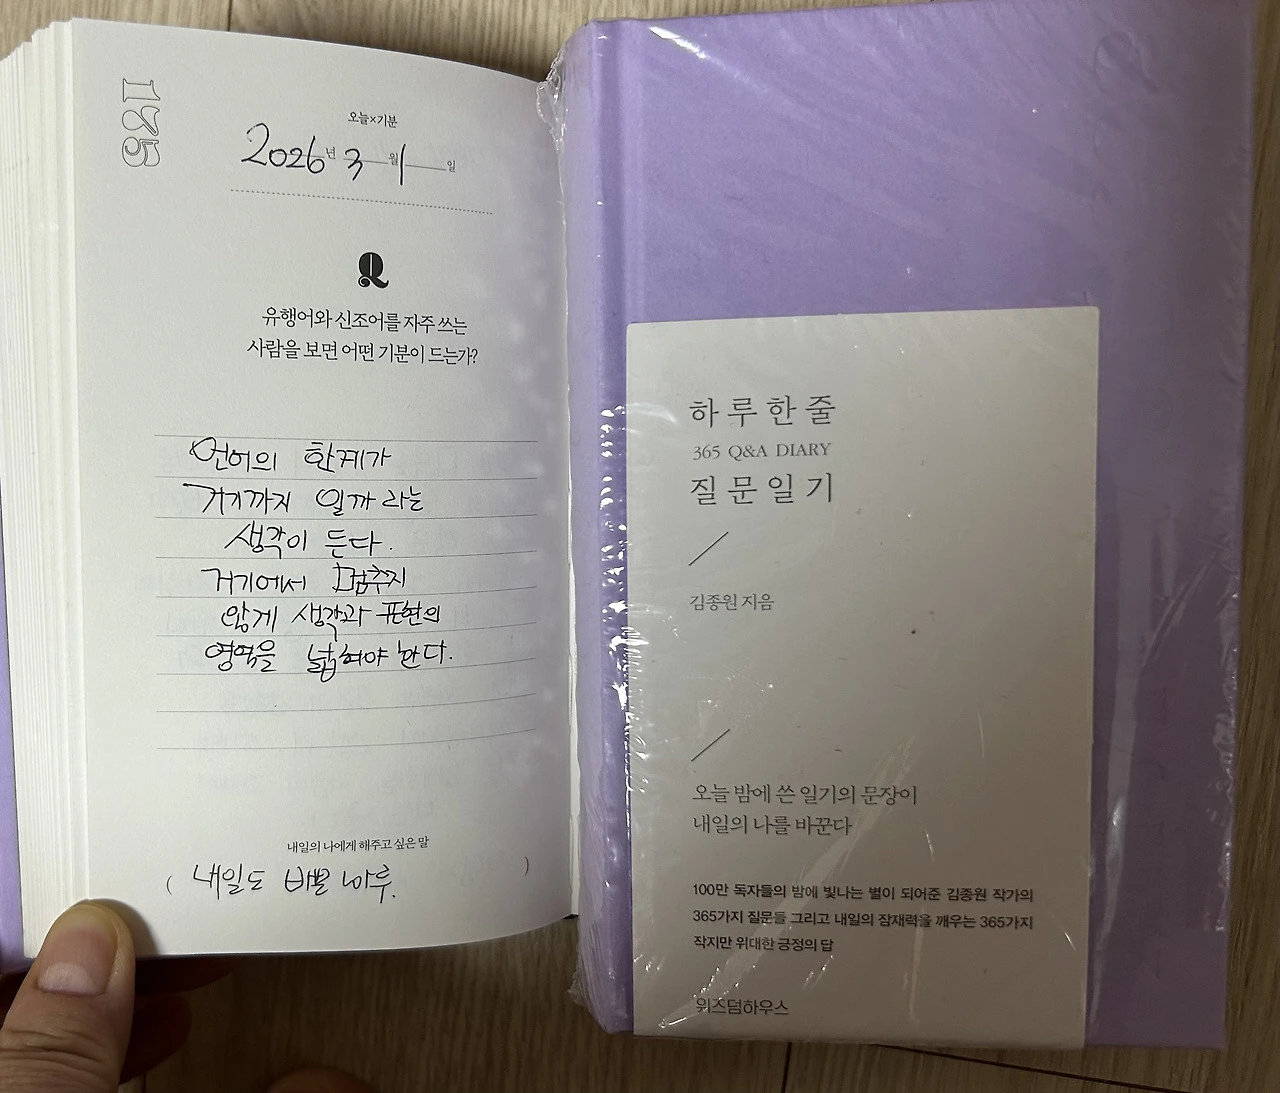 175
오늘×기분
2026년 3월 1일
Q
유행어와 신조어를 자주 쓰는
사람을 보면 어떤 기분이 드는가?
언어의 한계가
거기까지 일까 라는
생각이 든다.
거기에서 멈추지
않게 생각과 표현의
영역을 넓혀야 한다.
내일의 나에게 해주고 싶은 말
( 내일도 바쁠 하루. )
하루한줄
365 Q&A DIARY
질문일기
김종원 지음
오늘 밤에 쓴 일기의 문장이
내일의 나를 바꾼다
100만 독자들의 밤에 빛나는 별이 되어준 김종원 작가의
365가지 질문들 그리고 내일의 잠재력을 깨우는 365가지
작지만 위대한 긍정의 답
위즈덤하우스